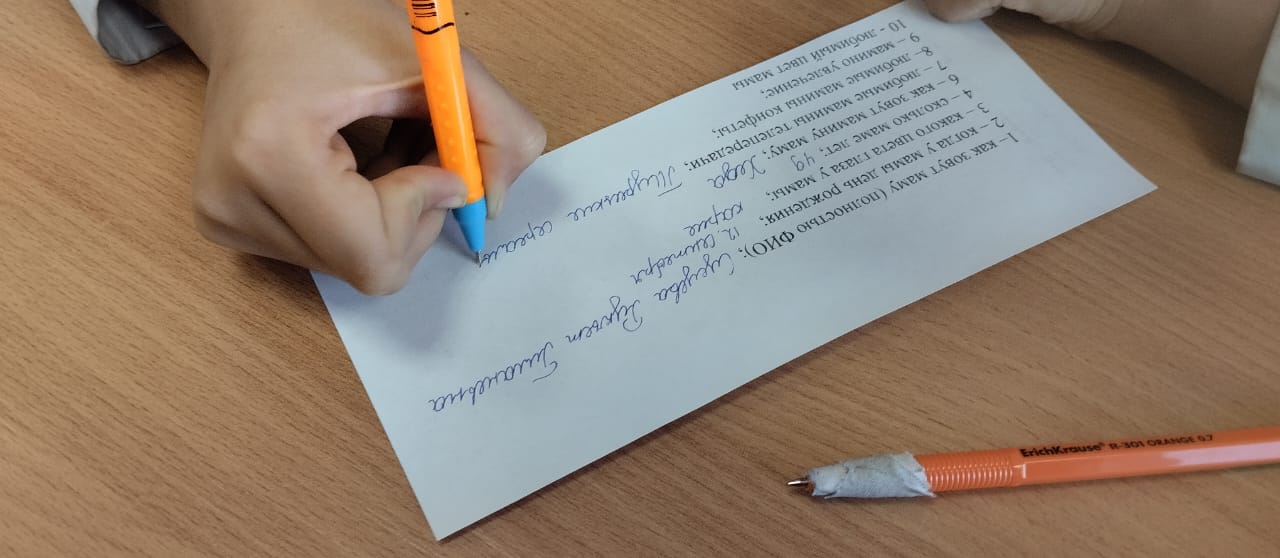 1– как зовут маму (полностью ФИО);
2 – когда у мамы день рождения; 12. сентября
3 – какого цвета глаза у мамы; карие
4 – сколько маме лет; 49
6 – как зовут мамину маму; Хеда
7 – любимые мамины телепередачи; Турецкие сериалы
8- любимые мамины конфеты;
9 – мамино увлечение;
10 - любимый цвет мамы
ErichKrause® R-301 ORANGE 0.7